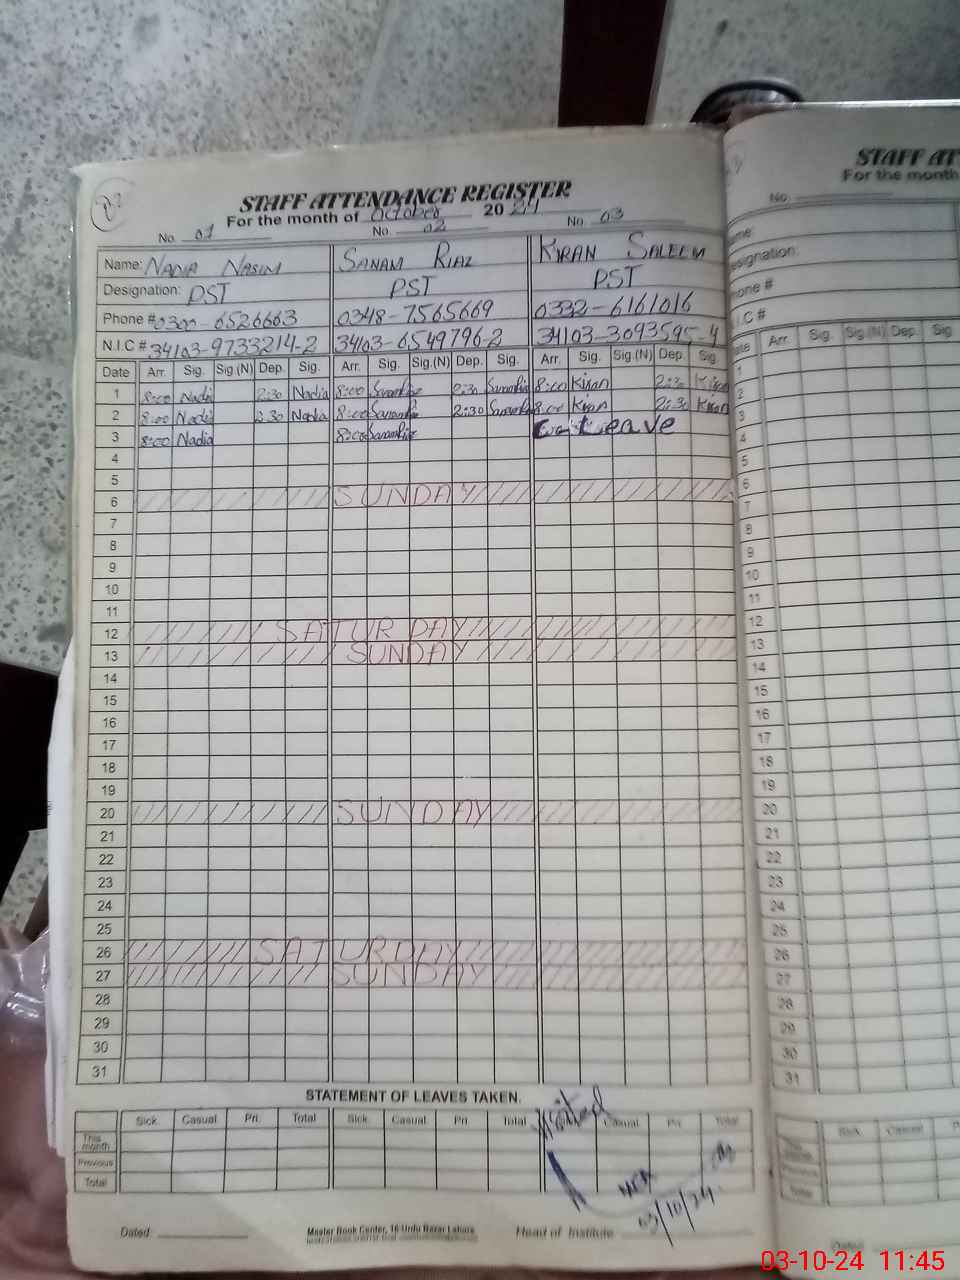 STAFF ATTENDANCE REGISTER
For the month of October 2024
No. 01 No. 02 No. 03
Name: NADIA NASIM SANAM RIAZ KIRAN SALEEM
Designation: PST PST PST
Phone # 0300-6526663 0348-7565669 0332-6161016
N.I.C # 34103-9733214-2 34103-6549796-2 34103-3093595-4
Date Arr. Sig. Sig.(N) Dep. Sig. Arr. Sig. Sig.(N) Dep. Sig. Arr. Sig. Sig.(N) Dep. Sig.
1 8:00 Nadia 2:30 Nadia 8:00 2:30 8:00 Kiran 2:30 Kiran
2 8:00 Nadia 2:30 Nadia 8:00 2:30 8:00 Kiran 2:30 Kiran
3 8:00 Nadia 8:00 Leave
4
5
6 SUNDAY
7
8
9
10
11
12 SATURDAY
13 SUNDAY
14
15
16
17
18
19
20 SUNDAY
21
22
23
24
25
26 SATURDAY
27 SUNDAY
28
29
30
31
STATEMENT OF LEAVES TAKEN.
Sick Casual Pri. Total Sick Casual Pri. Total Casual Pri. Total
This month
Previous
Total
Visited
03/10/24
Dated: Master Book Center, 16-Urdu Bazar Lahore Head of Institute
STAFF AT
For the month
No.
Name:
Designation:
Phone #
N.I.C #
Date Arr. Sig. Sig.(N) Dep. Sig
1
2
3
4
5
6
7
8
9
10
11
12
13
14
15
16
17
18
19
20
21
22
23
24
25
26
27
28
29
30
31
Sick Casual
Total
Dated:
03-10-24 11:45